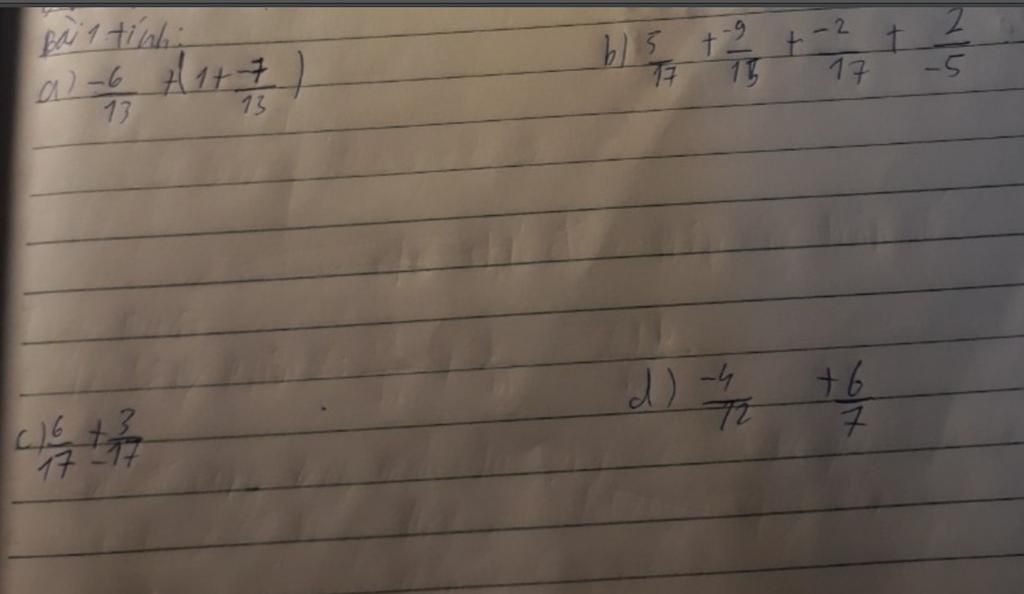 Bài 1 tính:
a) \frac{-6}{13} + (1 + \frac{-7}{13})
b) \frac{5}{17} + \frac{-9}{15} + \frac{-2}{17} + \frac{2}{-5}
c) \frac{6}{17} + \frac{3}{-17}
d) \frac{-4}{12} + \frac{6}{7}